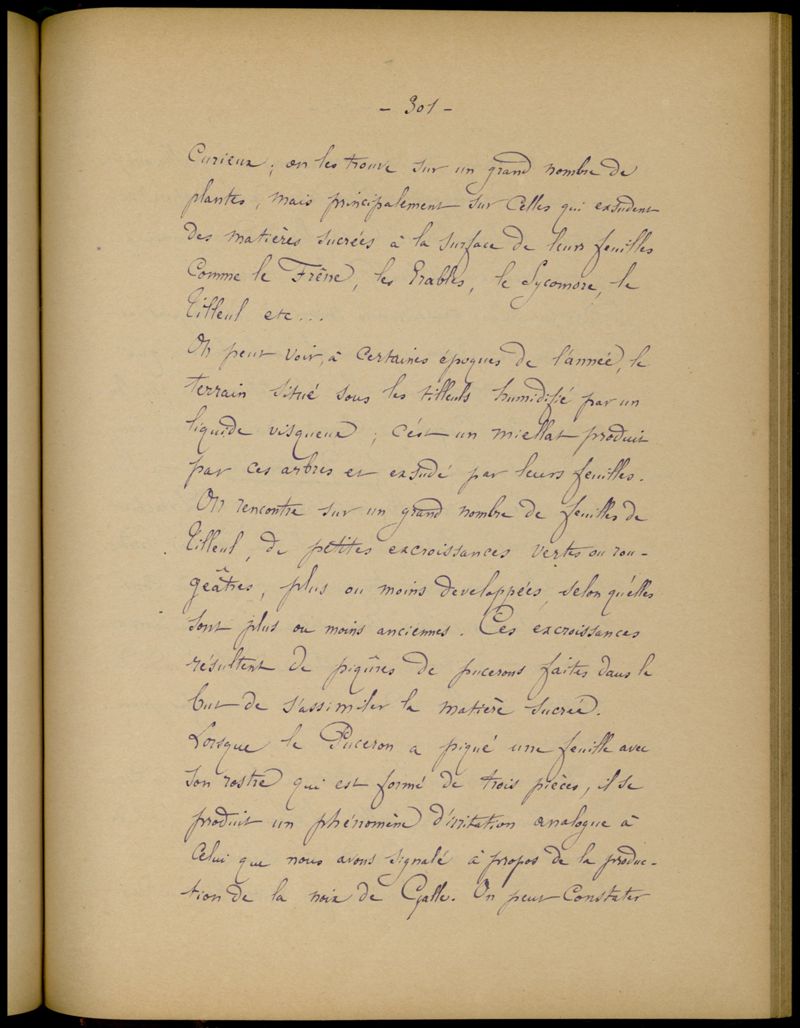 - 301 -
Curieux ; on les trouve sur un grand nombre de
plantes, mais principalement sur celles qui exsudent
des matières sucrées à la surface de leurs feuilles
Comme le Frêne, les Erables, le Sycomore, le
Tilleul etc...
On peut voir, à certaines époques de l'année, le
terrain situé sous les tilleuls humidifié par un
liquide visqueux ; c'est un miellat produit
par ces arbres et exsudé par leurs feuilles.
On rencontre sur un grand nombre de feuilles de
Tilleul, de petites excroissances vertes ou rou-
geâtres, plus ou moins developpées, selon qu'elles
sont plus ou moins anciennes. Ces excroissances
résultent de piqûres de pucerons faites dans le
but de s'assimiler la matière sucrée.
Lorsque le Puceron a piqué une feuille avec
son rostre qui est formé de trois pièces, il se
produit un phénomène d'irritation analogue à
celui que nous avons signalé à propos de la produc-
tion de la noix de Galle. On peut Constater